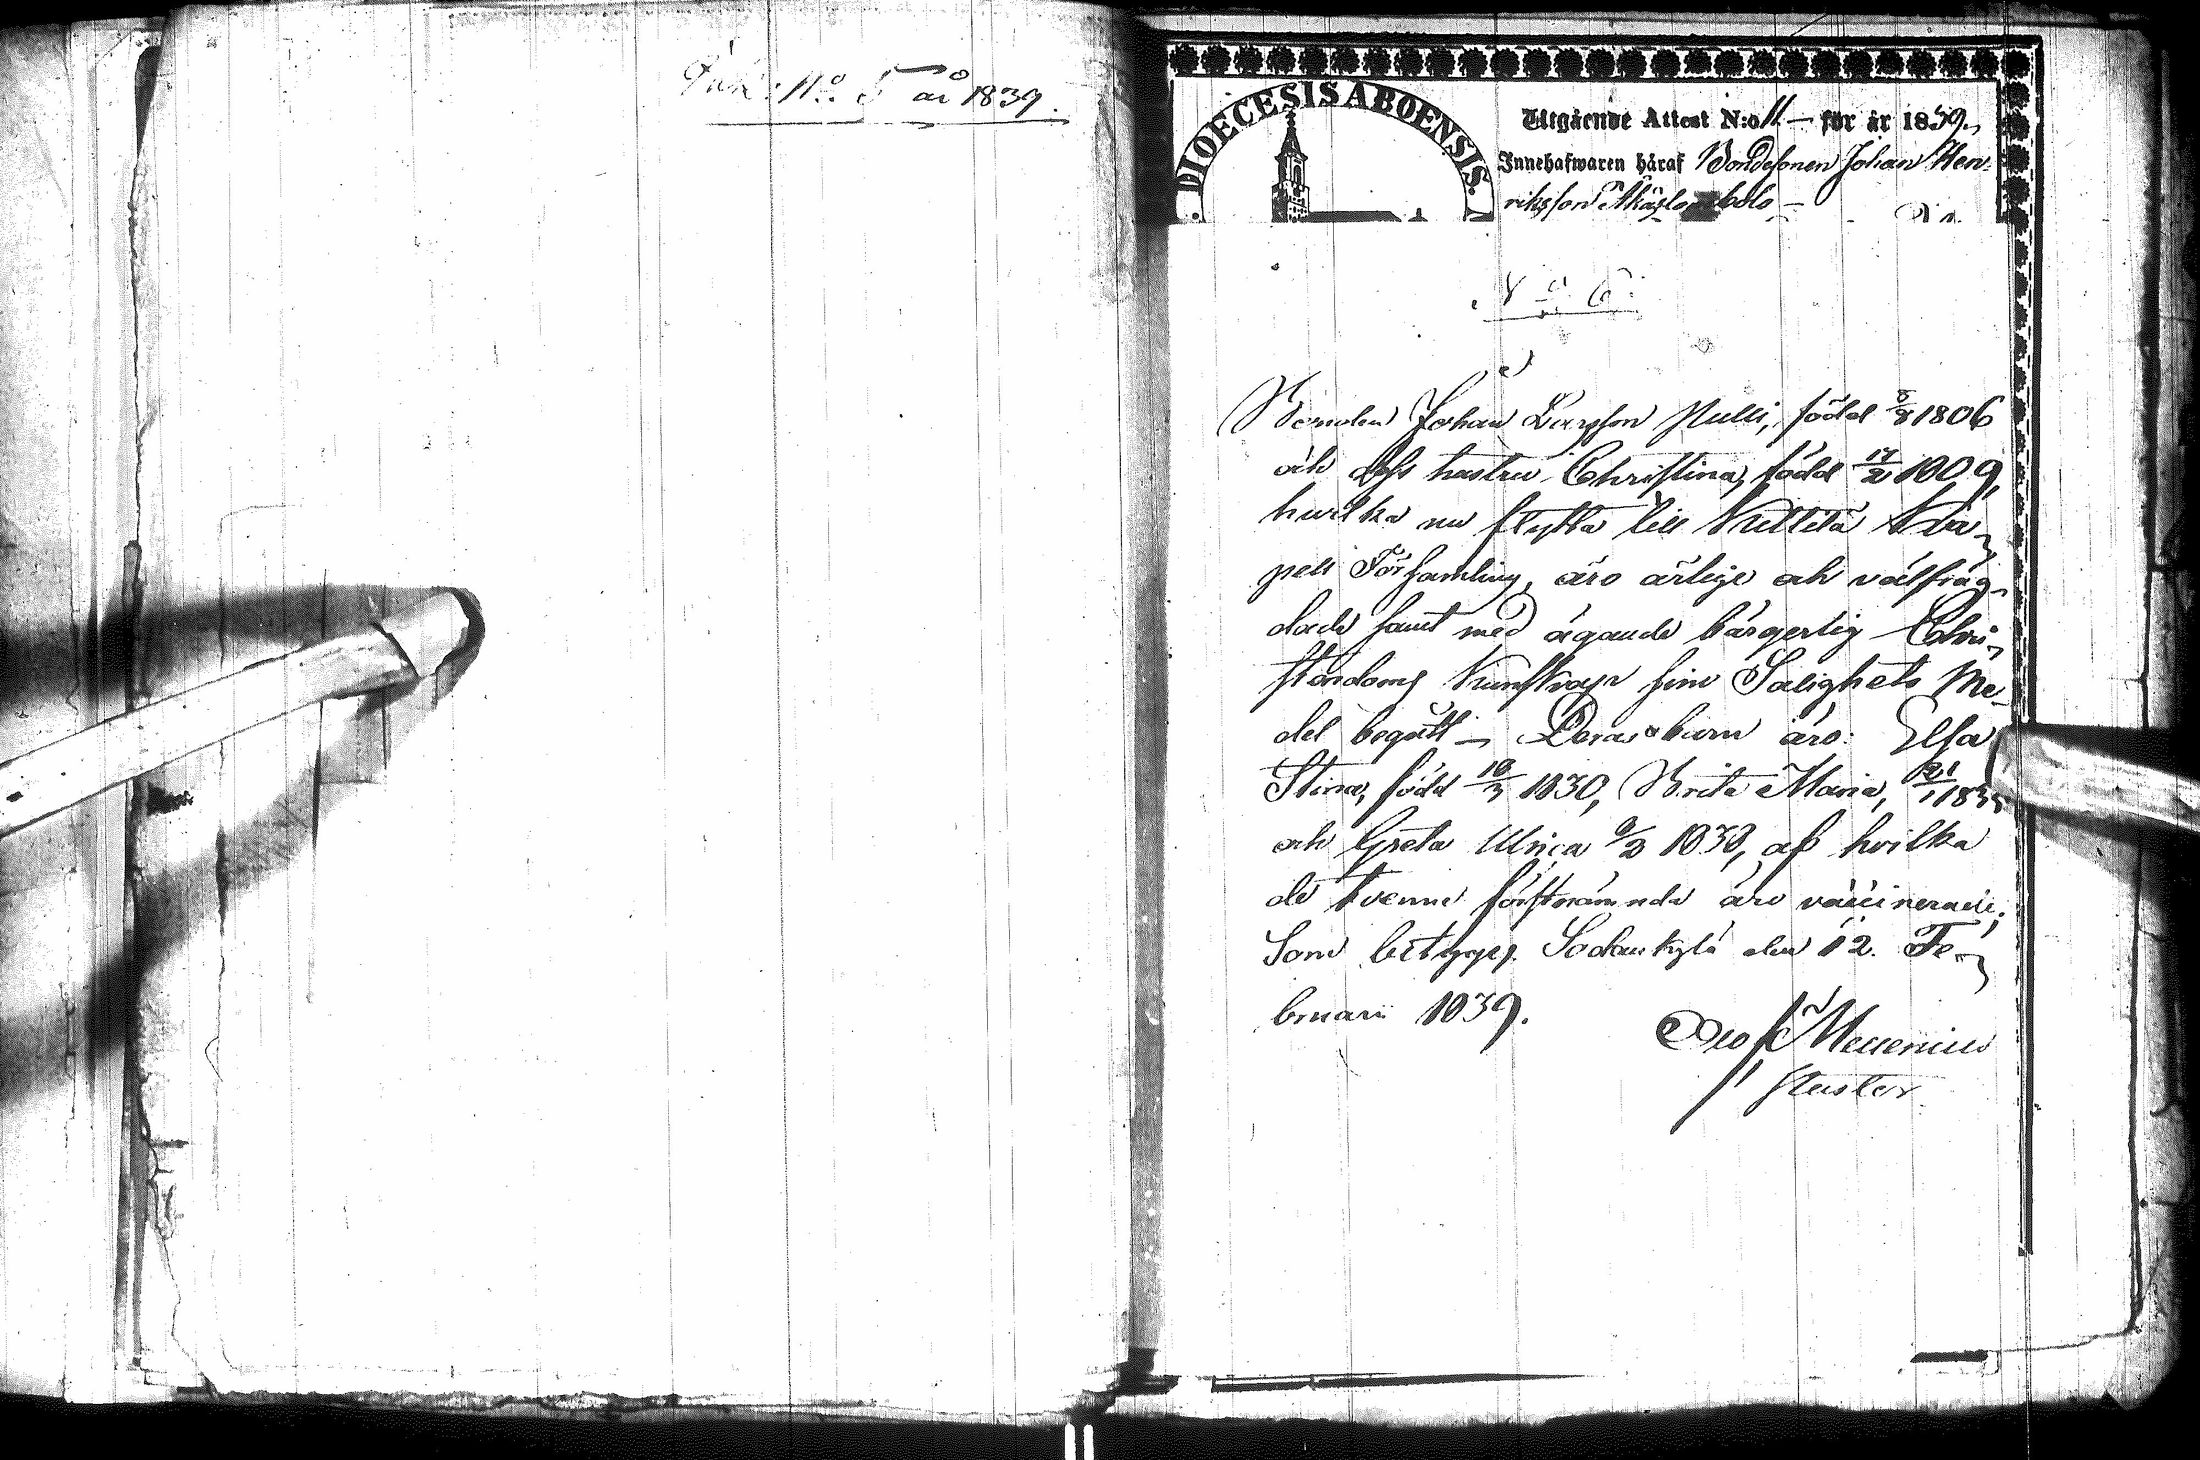 N:o 5 år 1839.
DIOECESIS ABOENSIS.
Utgående Attest N:o 11 – för år 1839.
Innehafwaren häraf Bondesonen Johan Hen-
riksson
N:o 6.
Bonden Johan Larsson Nulli, född 8/8 1806
och dess hustru Christina, född 17/2 1809,
hwilka nu flytta till Kittilä Ka-
pell Församling, äro ärlige och välfräg-
dade samt med ägande bärgerlig Chri-
stendoms kunskap sine Salighets Me-
del begått – Deras barn äro: Elsa
Stina, född 18/3 1830, Brita Maria, 21/1 1835
och Greta Ulrica 9/2 1838, af hvilka
de tvenne förstnämnda äro vaccinerade,
Som betygas. Sodankylä den 12. Fe-
bruarii 1839.
Messenius
Pastor